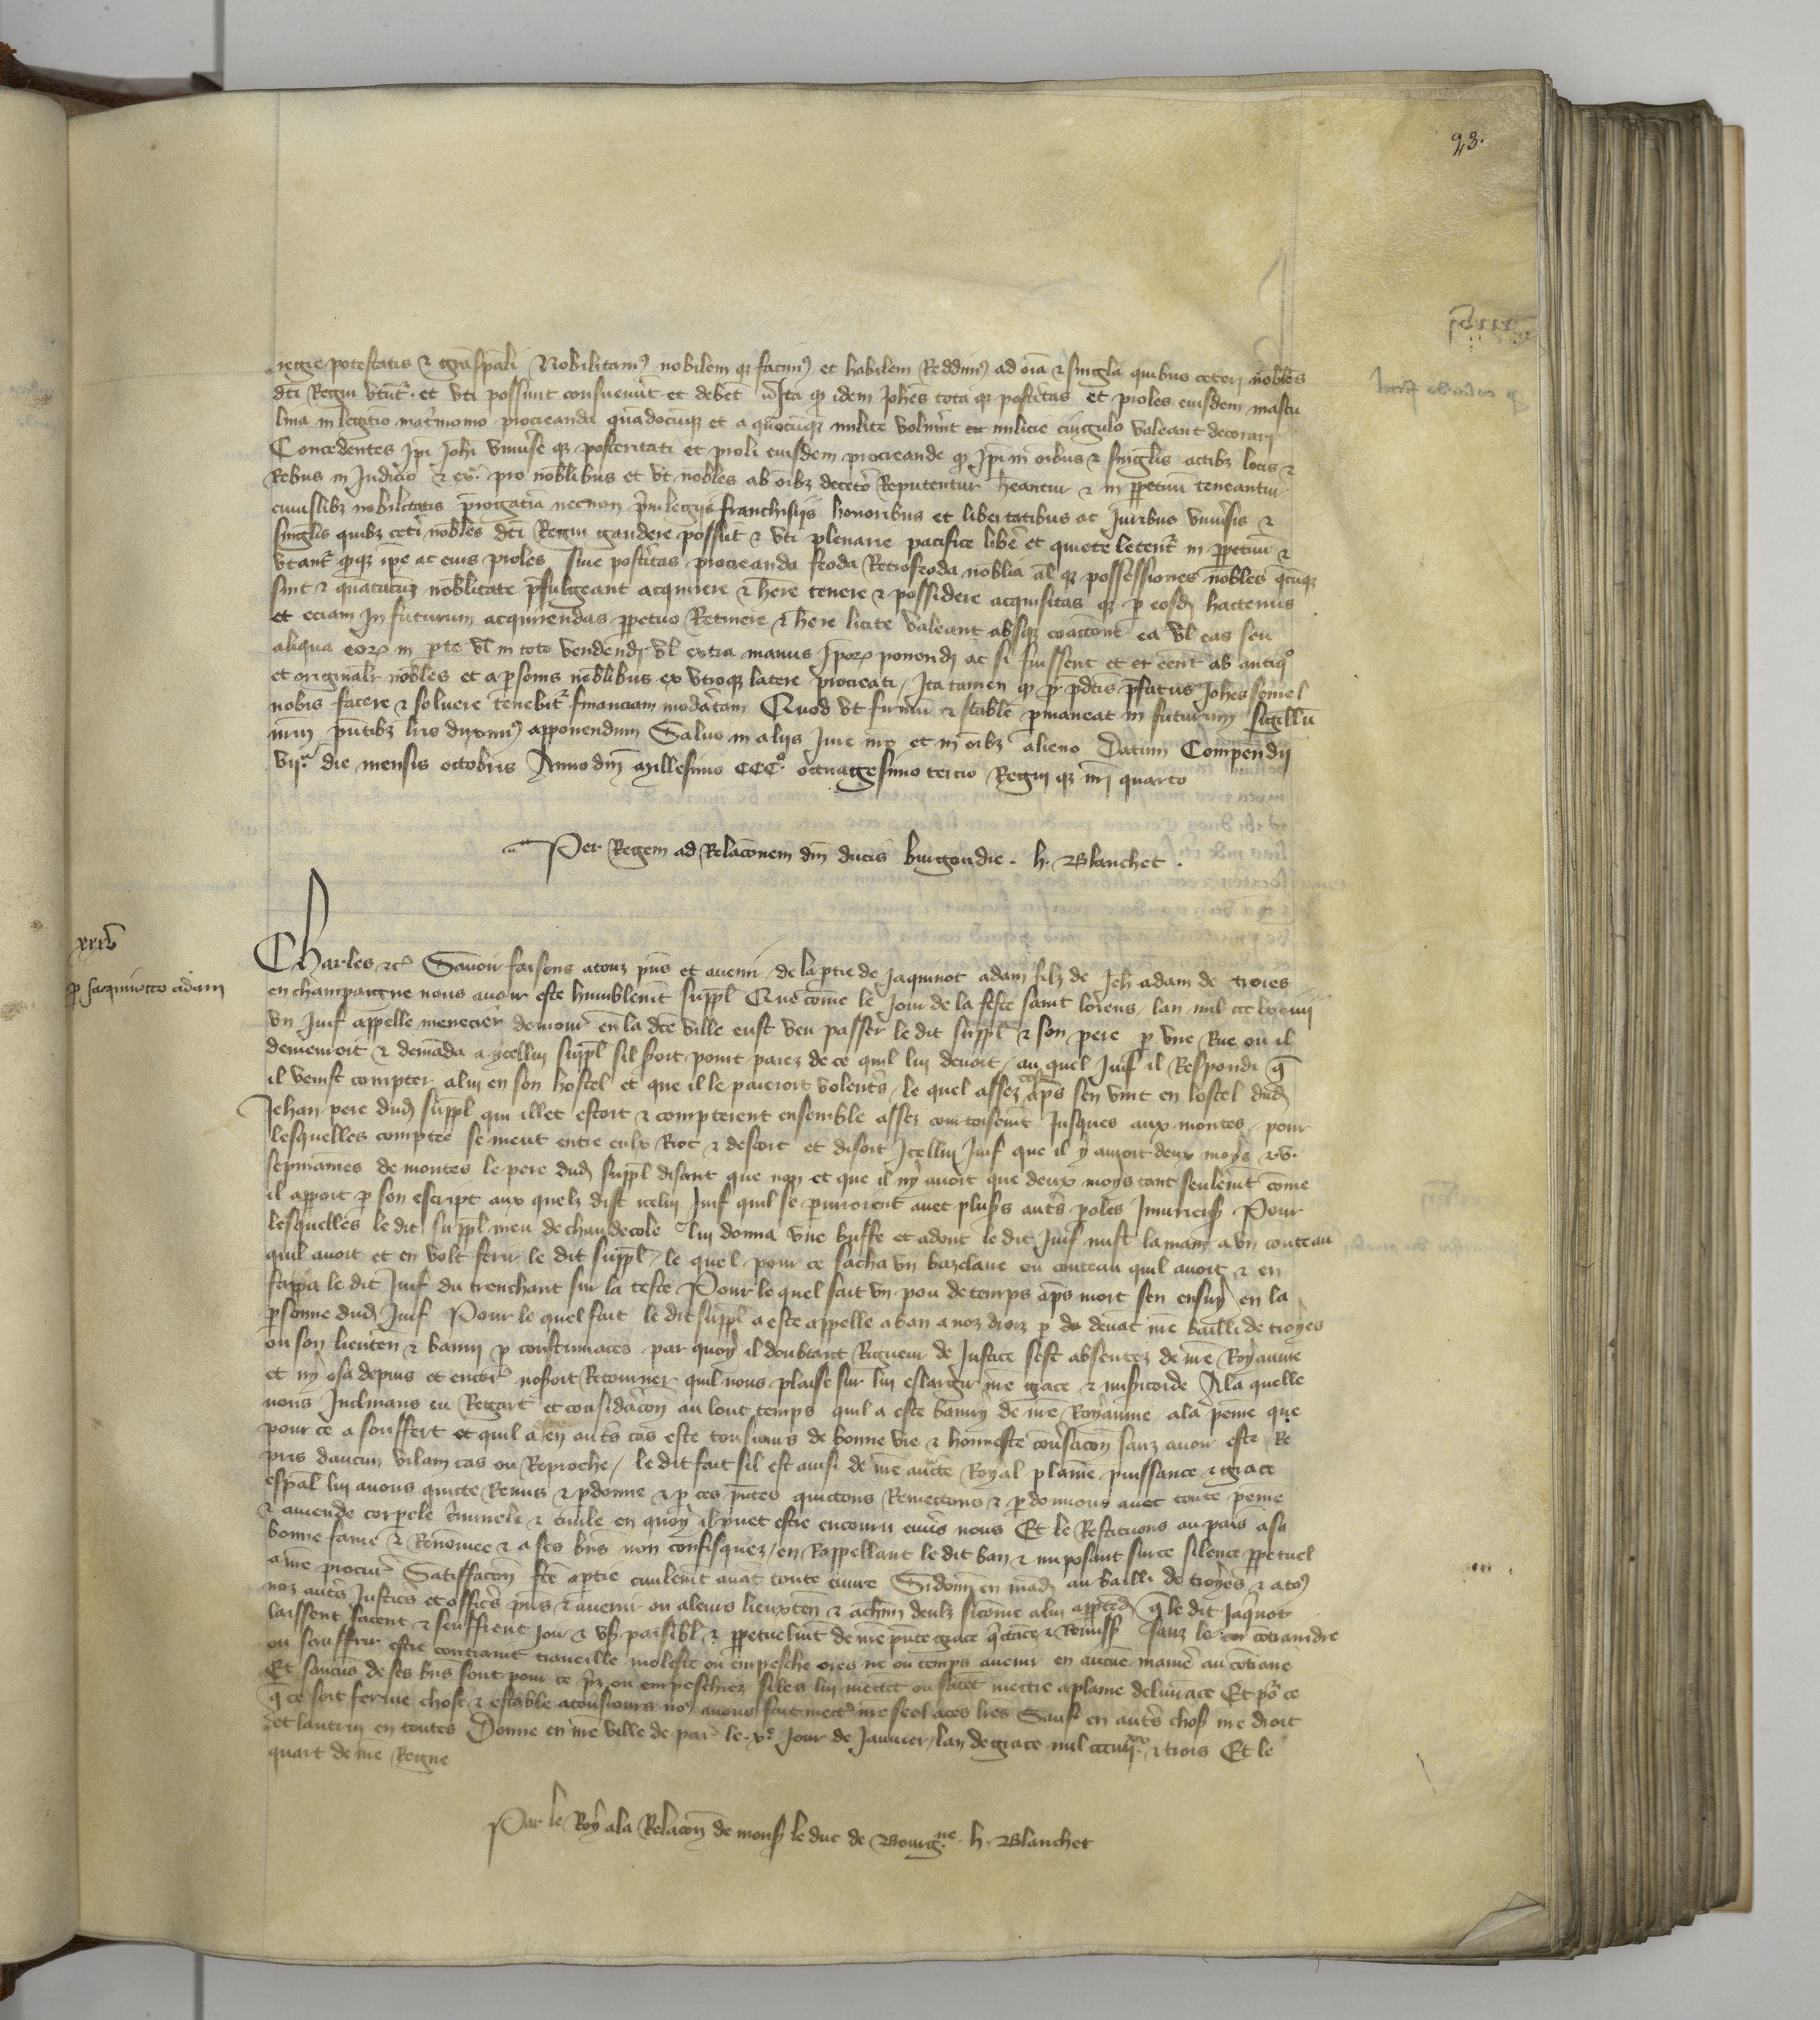 23.
regie potestatis & gra spali Nobilitam9 nobilem qz facim9 et habilem Reddim9 ad oia & singla quibus ceteri nobles
dci Regni utunt et uti possunt consueverut et debet Ita qz idem Johes tota qz postitas et proles eiusdem mascu
lina in legitimo matrimonio procreanda quadocuqz et a quocuqz milite voluerit milicie cingulo valeant decorari
Concedentes ipi Johi universe qz posteritati et proli eiusdem procreande qz ipi in oibus & singlis actibz locis &
Rebus in Judicio & ex pro noblibus et ut nobles ab oibz decetero Reputentur heantur & in ppetuu teneantur
cuiuslibz nobilitatis progatia necnon privilegiis franchisiis honoribus et libertatibus ac Juribus univsis &
singlis quibz ceti nobles dci Regni gaudere possut & uti plenarie pacifice libe et quiete letent in ppetuu &
utant qz ipe ac eius proles sive postitas procreanda feoda Retrofeoda noblia al qz possessiones nobles qcuqz
sint & quacucuqz noblitate pfulgeant acquirere & here tenere & possidere acquisitas qz p eosd hactenus
et eciam in futurum acquirendas ppetuo Retinere & here licite valeant absqz coactione ea vl eas seu
aliqua eorz in pte vl in toto vendendi vl extra manus ipорz ponendi ac si fuissent et eent ab antiqo
et originalr nobles et a psonis noblibus ex utroqz latere procreati / Ita tamen qz pr pdcis pfatus Johes semel
nobis facere & solvere tenebit financiam modatam Quod ut firmu & stabile pmaneat in futurum Sigillu
nrm pntibz lris duxim9 apponendum Salvo in aliis Jure nro et in oibz alieno Datum Compendii
vija die mensis octobris Anno dni Millesimo CCCo octuagesimo tercio Regni qz nri quarto
Per Regem ad Relacionem dni ducis burgondie . h. Blanchet .
xxxv
p Jaquinoto adam
Charles &c Savoir faisons a touz pns et avenir / de la ptie de Jaquinot adam filz de Jeh adam de troies
en champaigne nous avoir este humblemt suppl Que come le jour de la feste saint lorens / lan mil ccc lxxiiii
un Juif appelle menecier demour en la dce ville eust veu passer le dit suppl & son pere p une Rue ou il
demeuroit & demada a ycellui suppl sil soit point paiez de ce quil lui devoit / au quel Juif il Respondi q
il venist compter a lui en son hostel et que il le paieroit volenties / le quel assez tost aps sen vint en lostel dud
Jehan pere dud suppl qui illec estoit & compterent ensemble assez courtoisemt Jusques aux montes / pour
lesquelles comptee se meut entre eulx Riot & descort et disoit Icellui Juif que il y avoit deux moys & v.
sepmaines de montes le pere dud suppl disant que non et que il ny avoit que deux moys tant seulemt come
il apparoit p son escript aux quelz dist icelui Juif quil se pariuroient avec plusrs autrs poles Iniurieus Pour
lesquelles le dit suppl meu de chaudecole lui donna une buffe et adont le dit Juif mist la main a un couteau
quil avoit et en volt ferir le dit suppl / le quel pour ce sacha un bazelaire ou couteau quil avoit & en
frappa le dit Juif du trenchant sur la teste Pour le quel fait un pou de temps aps mort sen ensuy en la
psonne dud Juif Pour le quel fait le dit suppl a este appelle a ban a noz droiz p devat nre bailli de troyes
ou son lieuten & banny p coustumaces par quoy il doubtant Rigueur de Justice sest absentez de nre Royaume
et ny osa depuis et encor noseroit Retourner quil nous plaise sur lui eslargir nre grace & misicorde A la quelle
nous Inclinans eu Regart et considacion au lonc temps quil a este banny de nre Royaume a la peine que
pour ce a souffert et quil a en autrs cas este tousiours de bonne vie & honneste consacion sanz avoir este Re
pris daucun vilain cas ou Reproche / le dit fait sil est ainsi de nre aucte Royal plaine puissance & grace
espal lui avons quicte Remis & pdonne & p ces pntes quictons Remettons & pdonnons avec toute peine
& amende corpele crimnele & civile en quoy il puet estre encouru envs nous Et le Restituons au pais a sa
bonne fame & Renomee & a ses bns non confisquez / en Rappellant le dit ban & imposant sur ce silence ppetuel
a nre procur Satisfacion fce a ptie civilemt avat toute euvre Si donn en mad au bailli de troyes & a to9
noz autrs Justicrs et officrs pns & avenir ou a leurs lieuxten & a chun deulz si come a lui apptend q le dit Jaqinot
laissent facent & seuffrent joir & usr paisibl & ppetuelmt de nre pnte grace qictace & Remiss sanz le contraindre
ou souffrir estre contraint traveille moleste ou empesche ores ne ou temps avenir en aucue maniere au cotraire
Et saucuns de ses bns sont pour ce prz ou empeschiez si les lui mettet ou facet mettre a plaine delivrace Et por ce
q ce soit ferme chose & estable a tousiours no9 avons fait mettr nre seel a ces lres Sauf en autrs chos nre droit
et lautrui en toutes Donne en nre ville de par le xe Jour de Janvier / lan de grace mil ccc iiiixx & trois Et le
quart de nre Regne
Par le Roy a la Relacion de mons le duc de Bourgne . h. Blanchet